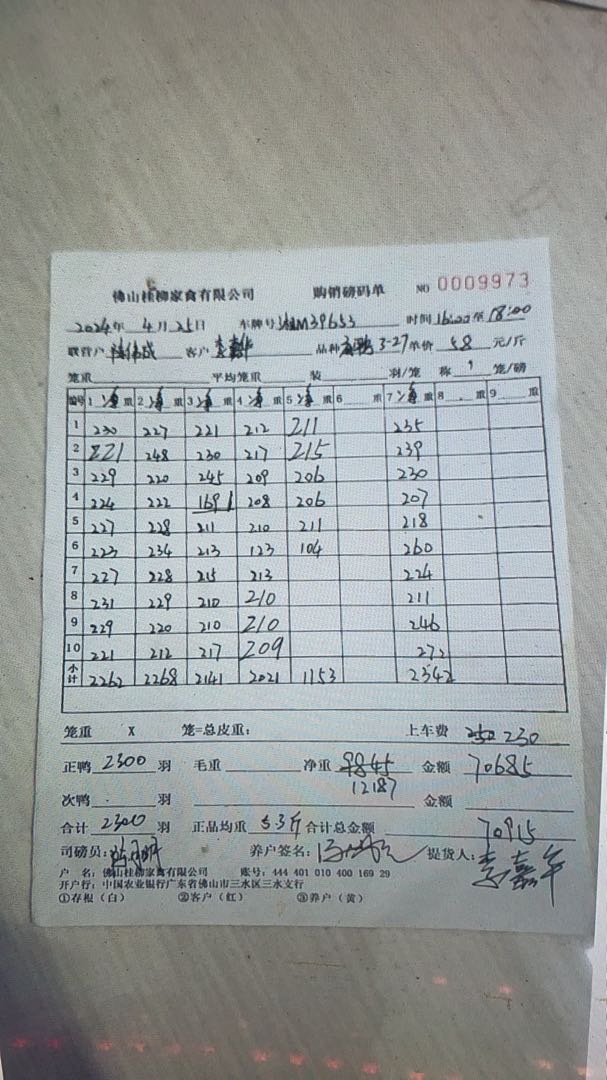 佛山桂柳家禽有限公司 购销磅码单 NO 0009973
2024年 4月25日 车牌号 M39653 时间 16:00至18:00
联营户 客户 品种 3-27 单价 5.8 元/斤
笼重 平均笼重 装 羽/笼 称 笼/磅
编号 1 净重 2 净重 3 净重 4 净重 5 净重 6 重 7 净重 8 重 9 重
1 230 227 221 212 211 235
2 221 248 230 217 215 239
3 229 220 245 209 206 230
4 224 222 169 208 206 207
5 227 228 211 210 211 218
6 223 234 213 123 104 260
7 227 228 215 213 224
8 231 229 210 210 211
9 229 220 210 210 246
10 221 212 217 209 272
小计 2262 2268 2141 2021 1153 2342
笼重 X 笼=总皮重: 上车费 230
正鸭 2300 羽 毛重 净重 9845 金额 70685
12187
次鸭 羽 金额
合计 2300 羽 正品均重 5.3斤 合计总金额 70915
司磅员: 养户签名: 提货人: 李嘉年
户 名: 佛山桂柳家禽有限公司 账号: 444 401 010 400 169 29
开户行: 中国农业银行广东省佛山市三水区三水支行
①存根(白) ②客户(红) ③养户(黄)